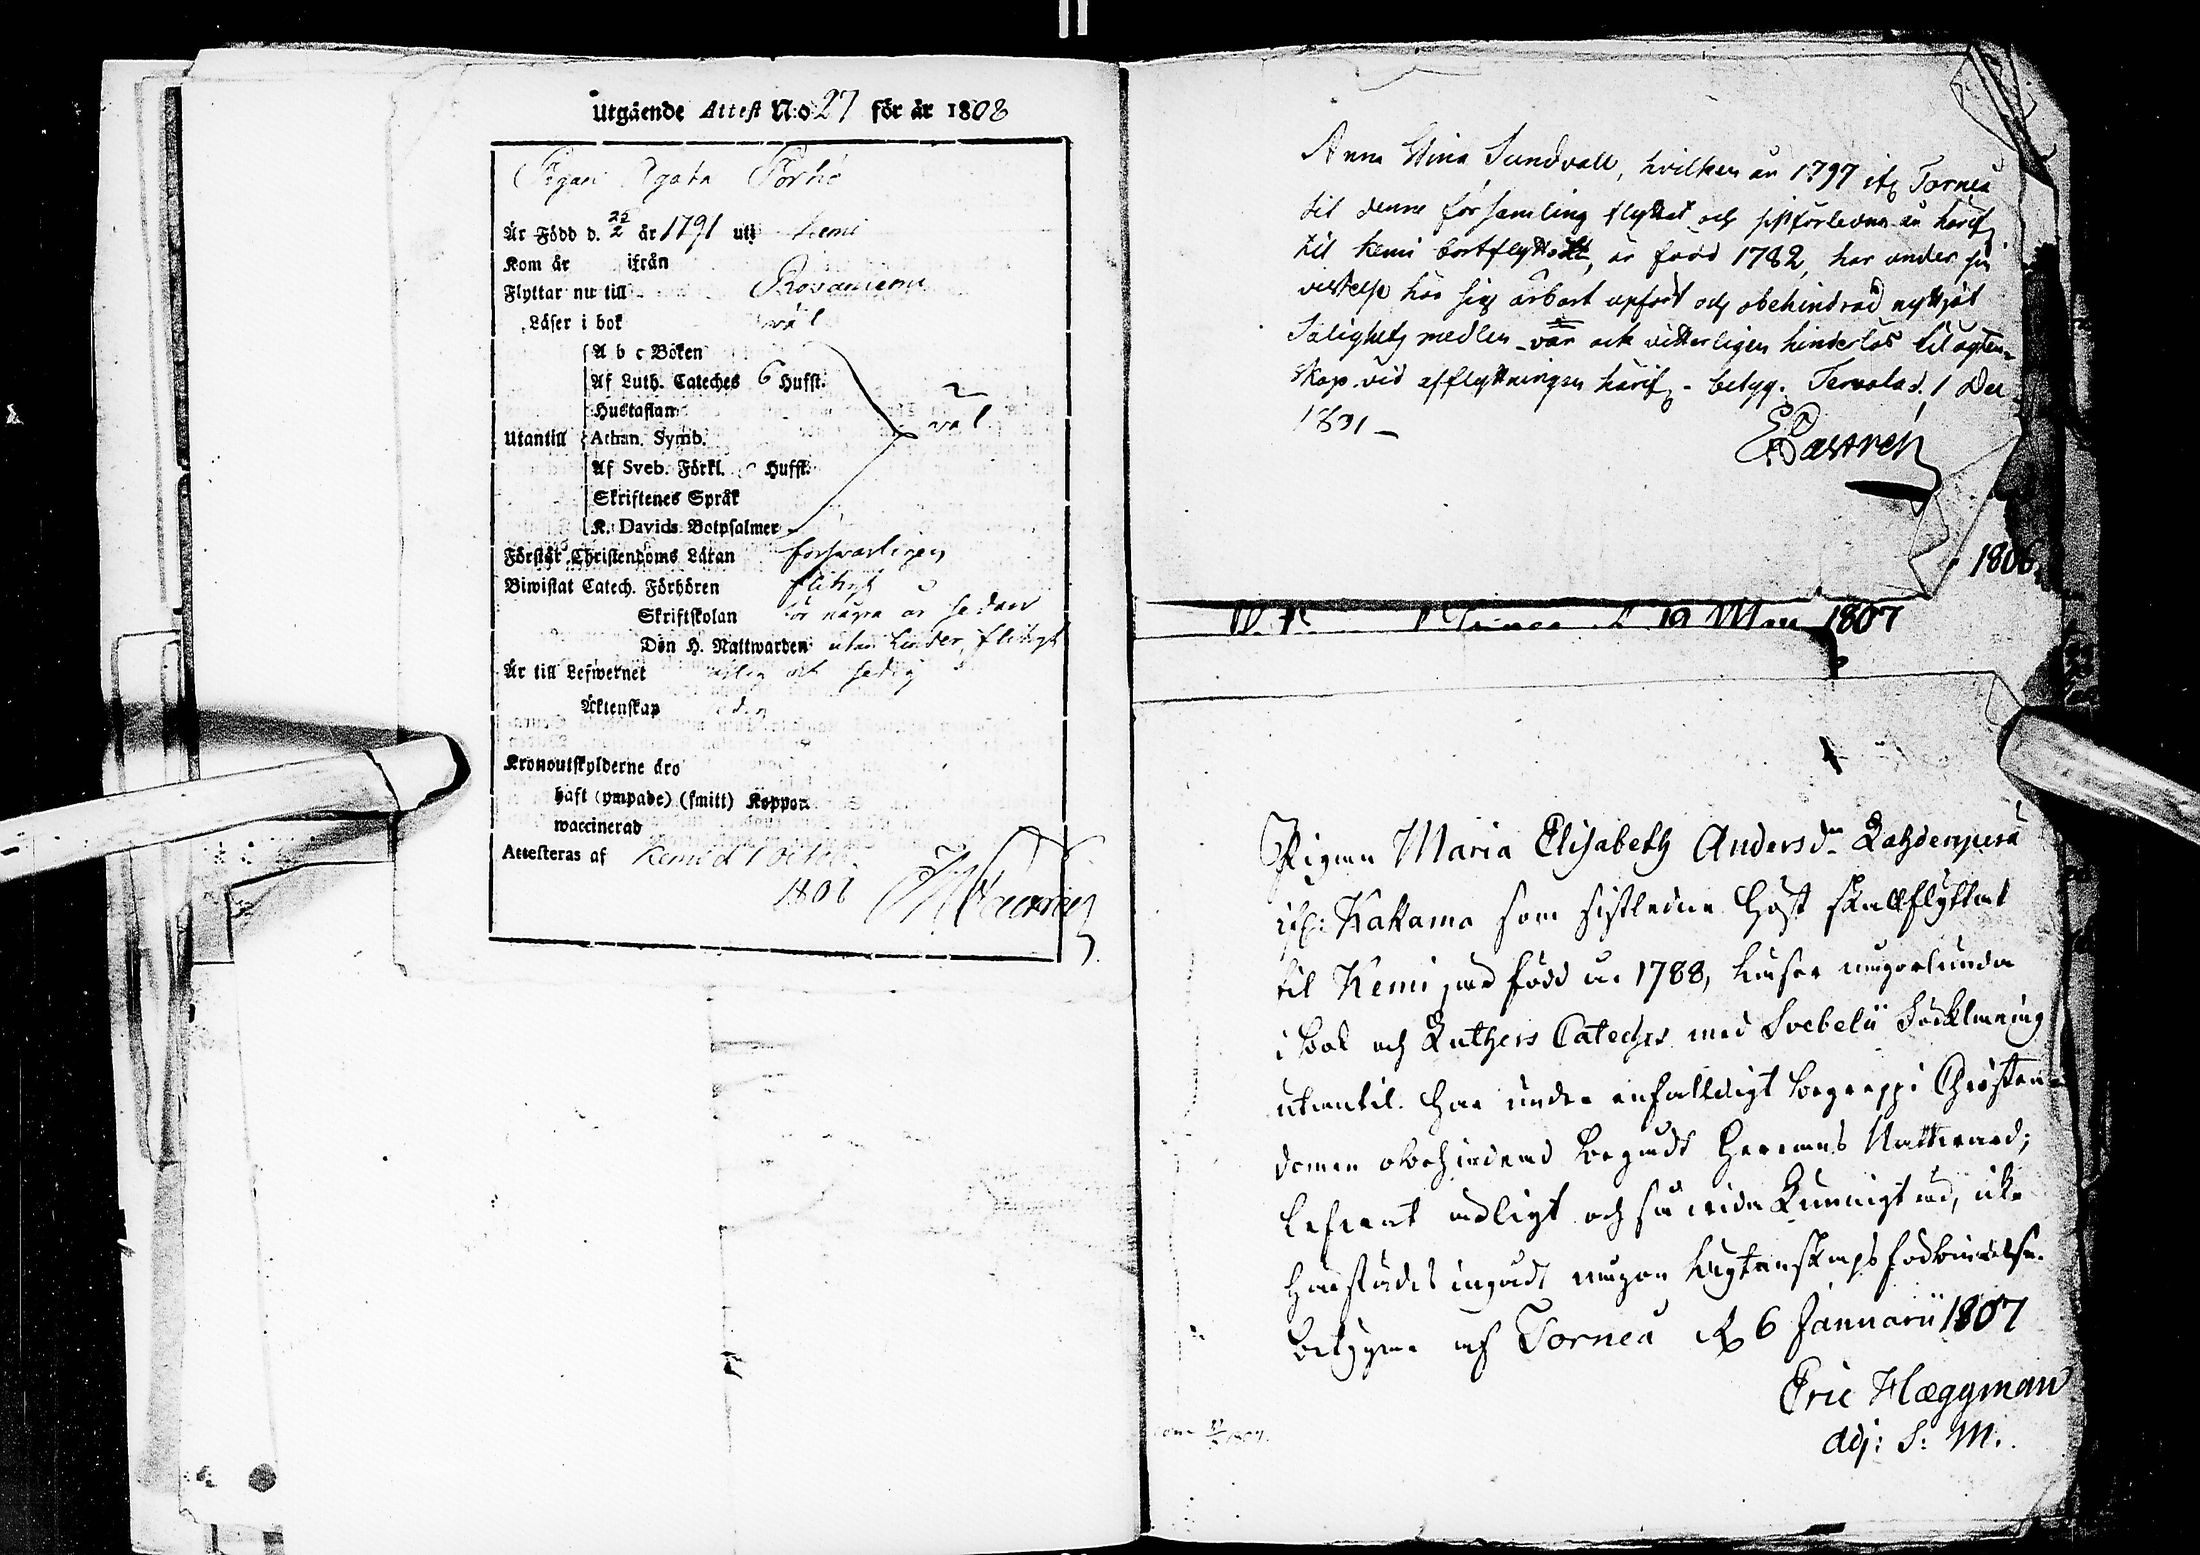 Utgående Attest N:o 27 för år 1808
Pigan Agata Porho
Är Född d. 25/2 år 1791 uti Kemi
Kom år ifrån
Flyttar nu till Rovaniemi
Läser i bok väl
A b c Boken
Af Luth. Cateches 6 Hufst.
Hustaflan väl
Utantill Athan. Symb.
Af Sveb. Förkl. Hufst.
Skriftenes Språk
K. Davids Botpsalmer
Förstår Christendoms Läran försvarligen
Biwistat Catech. Förhören flitigt
Skriftskolan för några år sedan
Den H. Nattwarden utan hinder, flitigt
Är till Lefwernet ärlig och sedig
Äktenskap ledig
Kronoutskylderne äro
haft (ympade) (smitt) Koppor
waccinerad
Attesteras af Kemi d 1 Octob.
1808
Anna Stina Sundvall, hvilken år 1797 ifr Torneå
til denna församling flyttat och sistförledne år härifr
til Kemi bortflyttadt, är född 1782, har under sin
vistelse här sig ärbart upfört och obehindrad nyttjat
Salighets medlen - var ock vitterligen hinderlös til ägten-
skap vid afflyttningen härifr - betyg. Tervola d. 1 Dec
1801 -
ECastrén
1806
d 19 Maii 1807
Pigan Maria Elisabeth Andersdr
ifr: Kakama som sistledne höst skall flyttat
til Kemi, är född år 1788, läser någorlunda
i bok och Luthers Cateches med Svebelii Förklaring
utantil. Har under enfaldigt begrepp i Christen-
domen obehindrad begådt Herrans Nattvard;
lefvat ärligt och så vida kunnigt är, icke
härstädes ingådt någon ägtenskaps förbindelse.
betygar af Torneå d 6 Januarii 1807
Eric Hæggman
adj: S: M: